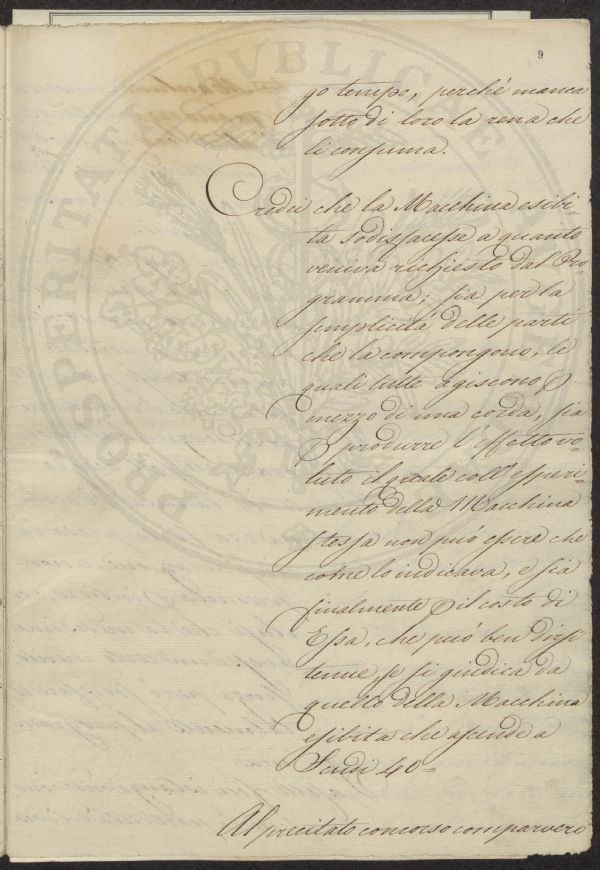 9
go tempo, perché manca
sotto di loro la rena che
li consuma.
Credei che la Macchina esibi-
ta sodisfacesse a quanto
veniva richiesto dal Pro
gramma; sia per la
semplicità delle parti
che la compongono, le
quali tutte agiscono p
mezzo di una corda, sia
p produrre l'effetto vo-
luto il quale coll'esperi-
mento della Macchina
stessa non può essere che
come lo indicava, e sia
finalmente p il costo di
Essa, che può ben dirsi
tenue, se si giudica da
quello della Macchina
esibita che ascende a
Scudi 40=
Al precitato concorso comparvero
PROSPERITATI PVBLICAE